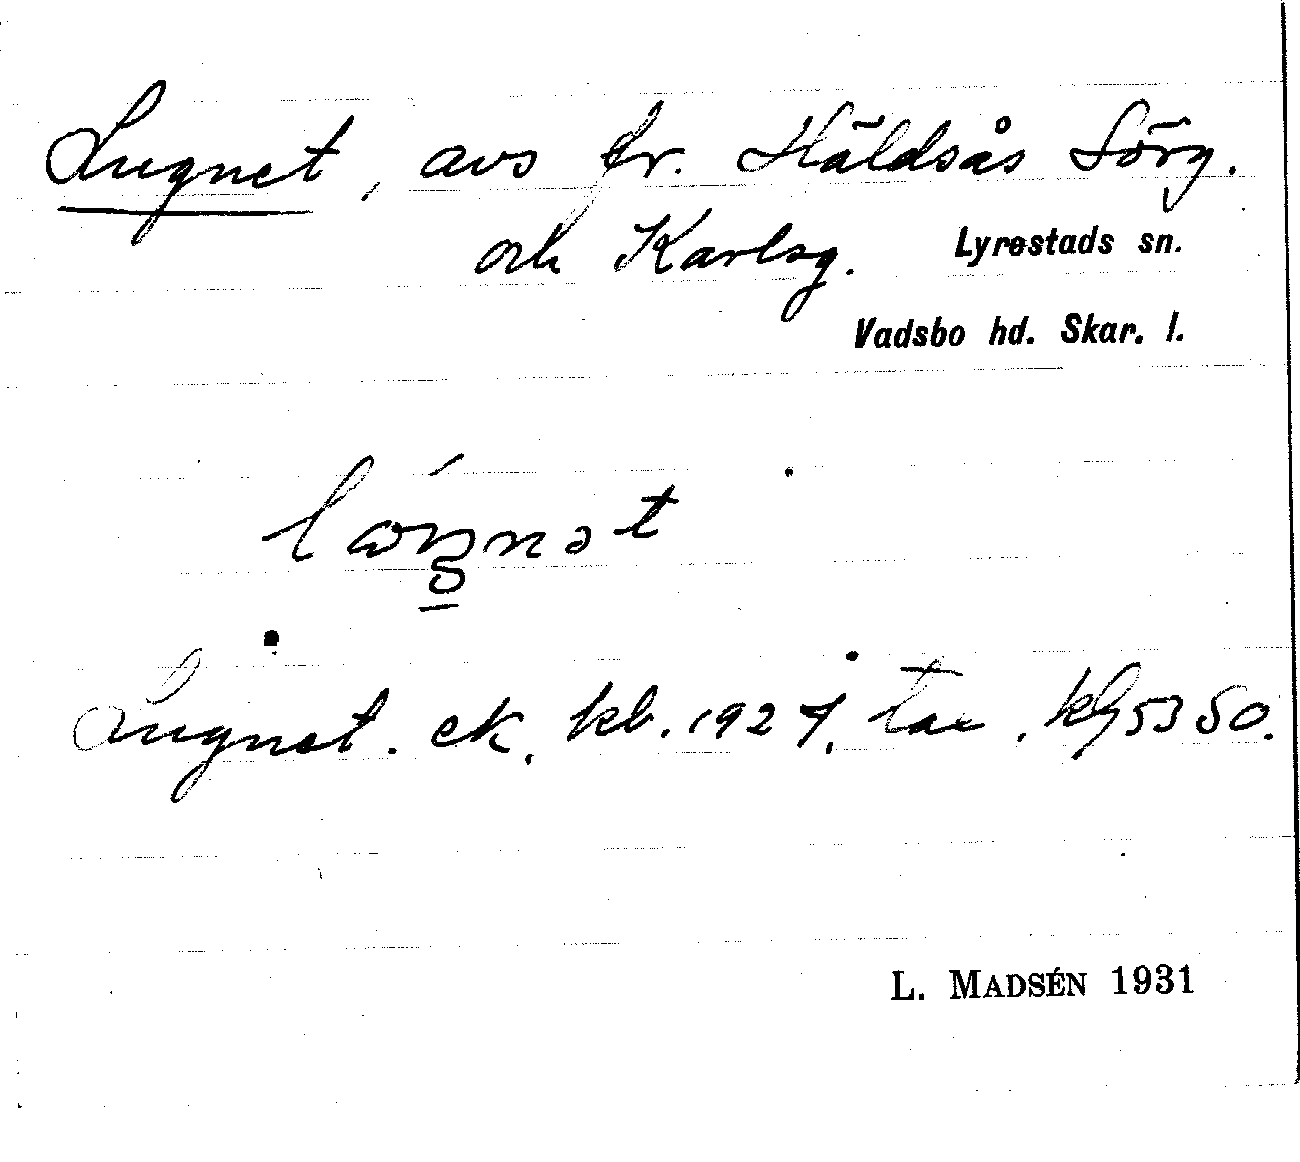 Lugnet, avs fr. Häldsås Sörg.
och Karlsg. Lyrestads sn.
Vadsbo hd. Skar. l.
Lugnet. ek. kb. 1927, tax.
L. MADSÉN 1931